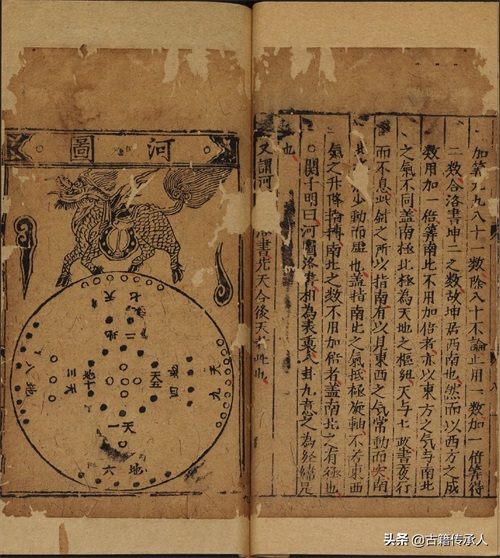 加筭九九八十一數除八十不論止用一數加一倍筭得
二數合洛書坤二之數故坤居西南也然而以西方之成
數用加一倍筭南北不用加倍者亦以東方之氣与南北
之氣不同盖南極北極為天地之樞紐天与七政晝夜行
而不息此針之所以指南有以見東西之氣常動而夫南
少動而靜也盖指南北之氣抵極旋軸不若東西
氣之升降旋轉南北之數不用加倍者盖南北之有極也
○關子明曰河圖洛書相為表裏八卦九章之為經緯是
也
又謂河書先天合後天此也
河圖
天七
地二
地八
天三
地十
天五
地四
天九
天一
地六
头条 @古籍传承人